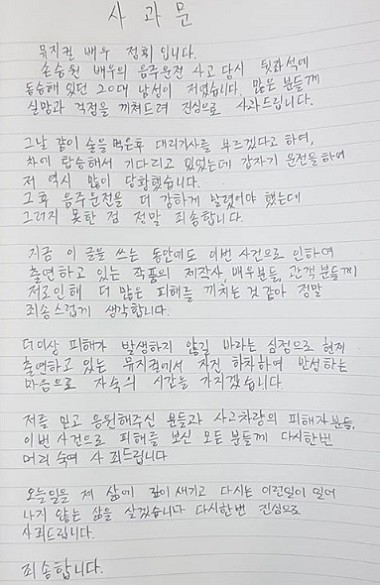 사과문
뮤지컬 배우 정휘 입니다.
손승원 배우의 음주운전 사고 당시 뒷좌석에
동승해 있던 20대 남성이 저였습니다. 많은 분들께
실망과 걱정을 끼쳐드려 진심으로 사과드립니다.
그날 같이 술을 먹은후 대리기사를 부르겠다고 하여,
차에 탑승해서 기다리고 있었는데 갑자기 운전을 하여
저 역시 많이 당황했습니다.
그후 음주운전을 더 강하게 말렸어야 했는데
그러지 못한 점 정말 죄송합니다.
지금 이 글을 쓰는 동안에도 이번 사건으로 인하여
출연하고 있는 작품의 제작사 배우분들, 관객분들께
저로인해 더 많은 피해를 끼치는 것 같아 정말
죄송스럽게 생각합니다.
더이상 피해가 발생하지 않길 바라는 심정으로 현재
출연하고 있는 뮤지컬에서 자진 하차하여 반성하는
마음으로 자숙의 시간을 가지겠습니다.
저를 믿고 응원해주신 분들과 사고차량의 피해자분들,
이번 사건으로 피해를 보신 모든 분들께 다시한번
머리 숙여 사죄드립니다
오늘일을 제 삶에 깊이 새기고 다시는 이런일이 일어
나지 않는 삶을 살겠습니다 다시한번 진심으로
사죄드립니다.
죄송합니다.